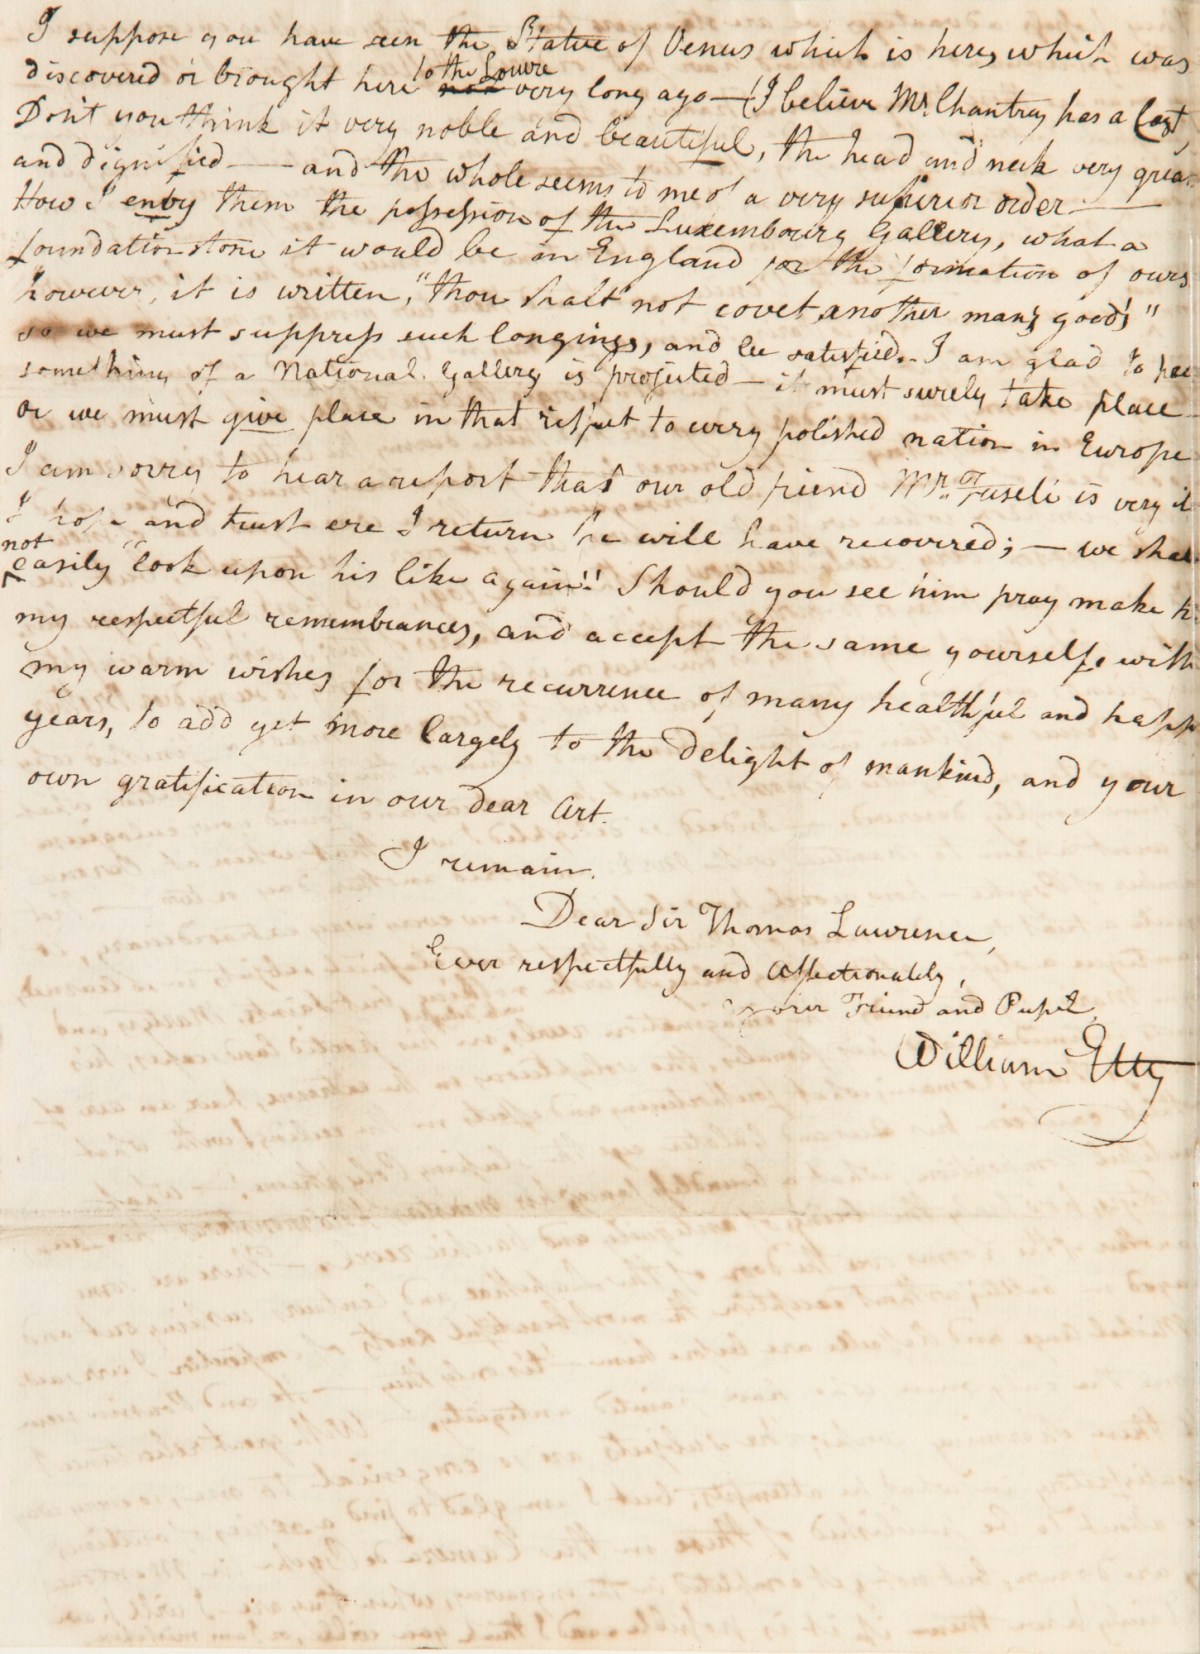 I suppose you have seen the Statue of Venus which is here, which was
to the Louvre
discovered or brought here not very long ago — (I believe Mr. Chantrey has a Cast,
Don't you think it very noble and beautiful, the head and neck very grea
and dignified —— and the whole seems to me of a very superior order ——
How I envy them the possession of the Luxembourg Gallery, what a
foundation stone it would be in England for the formation of ours
however, it is written, "thou shalt not covet another mans goods"
so we must suppress such longings, and be satisfied. I am glad to hea
something of a National Gallery is projected — it must surely take place
or we must give place in that respect to every polished nation in Europe
I am sorry to hear a report that our old friend Mr. Fuseli is very il
I hope and trust ere I return he will have recovered; — we shal
not
easily "look upon his like again"! Should you see him pray make h
my respectful remembrances, and accept the same yourself, with
my warm wishes for the recurrence of many healthful and happ
years, to add yet more largely to the delight of mankind, and your
own gratification in our dear Art.
I remain.
Dear Sir Thomas Lawrence,
Ever respectfully and affectionately,
your Friend and Pupil,
William Etty